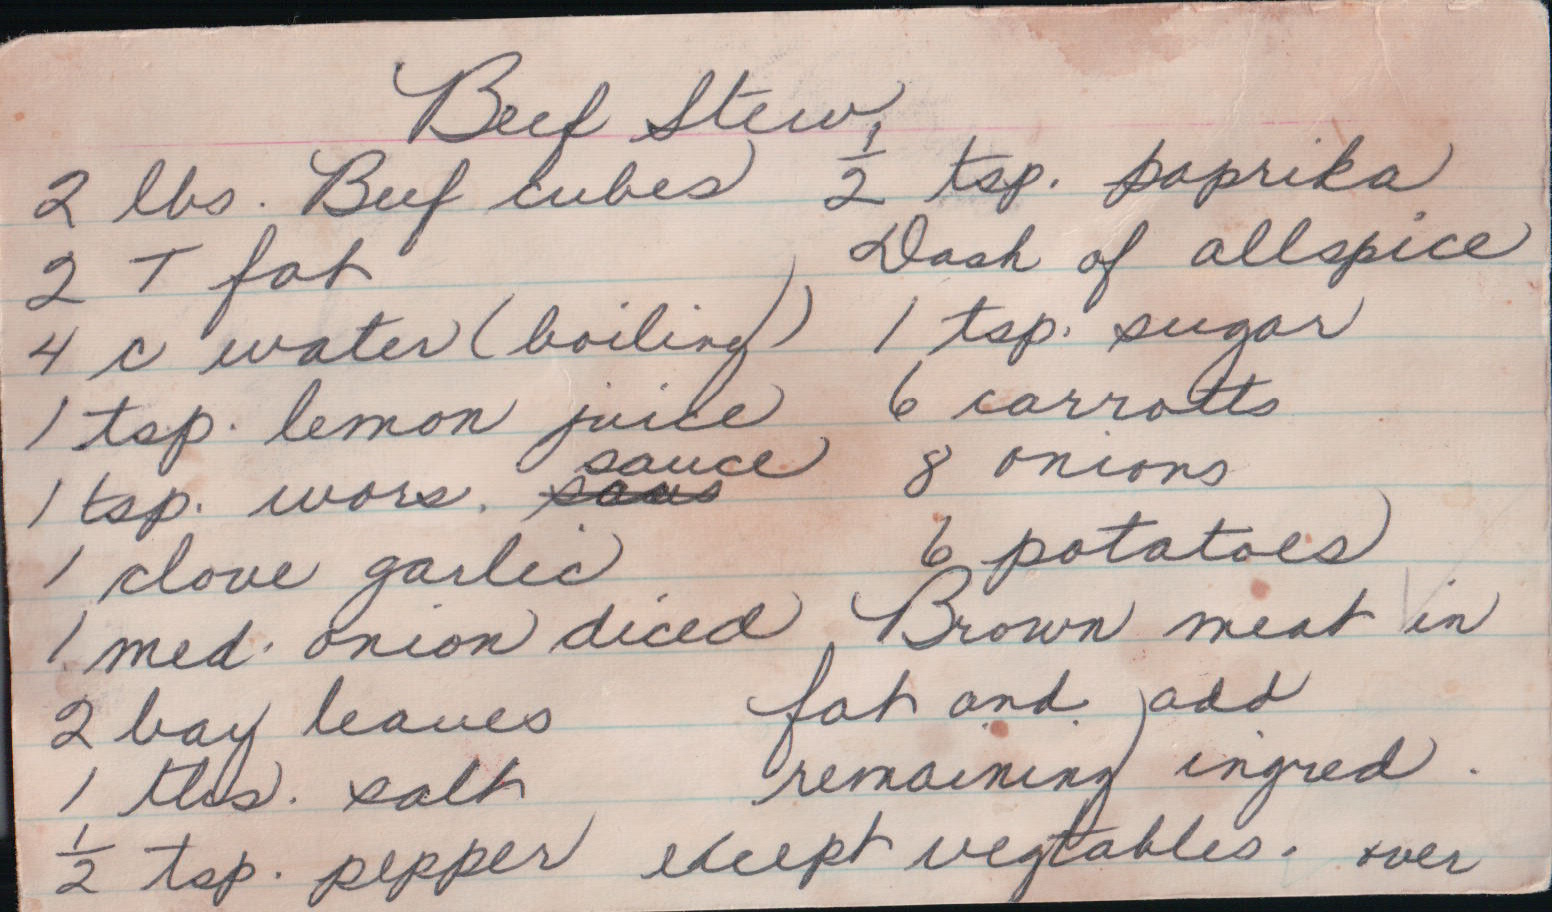 Beef Stew
2 lbs. Beef cubes
2 T fat
4 c water (boiling)
1 tsp. lemon juice
1 tsp. wors. sauce
1 clove garlic
1 med. onion diced
2 bay leaves
1 tbs. salt
1/2 tsp. pepper
1/2 tsp. paprika
Dash of allspice
1 tsp. sugar
6 carrotts
8 onions
6 potatoes
Brown meat in
fat and add
remaining ingred.
except vegtables. over